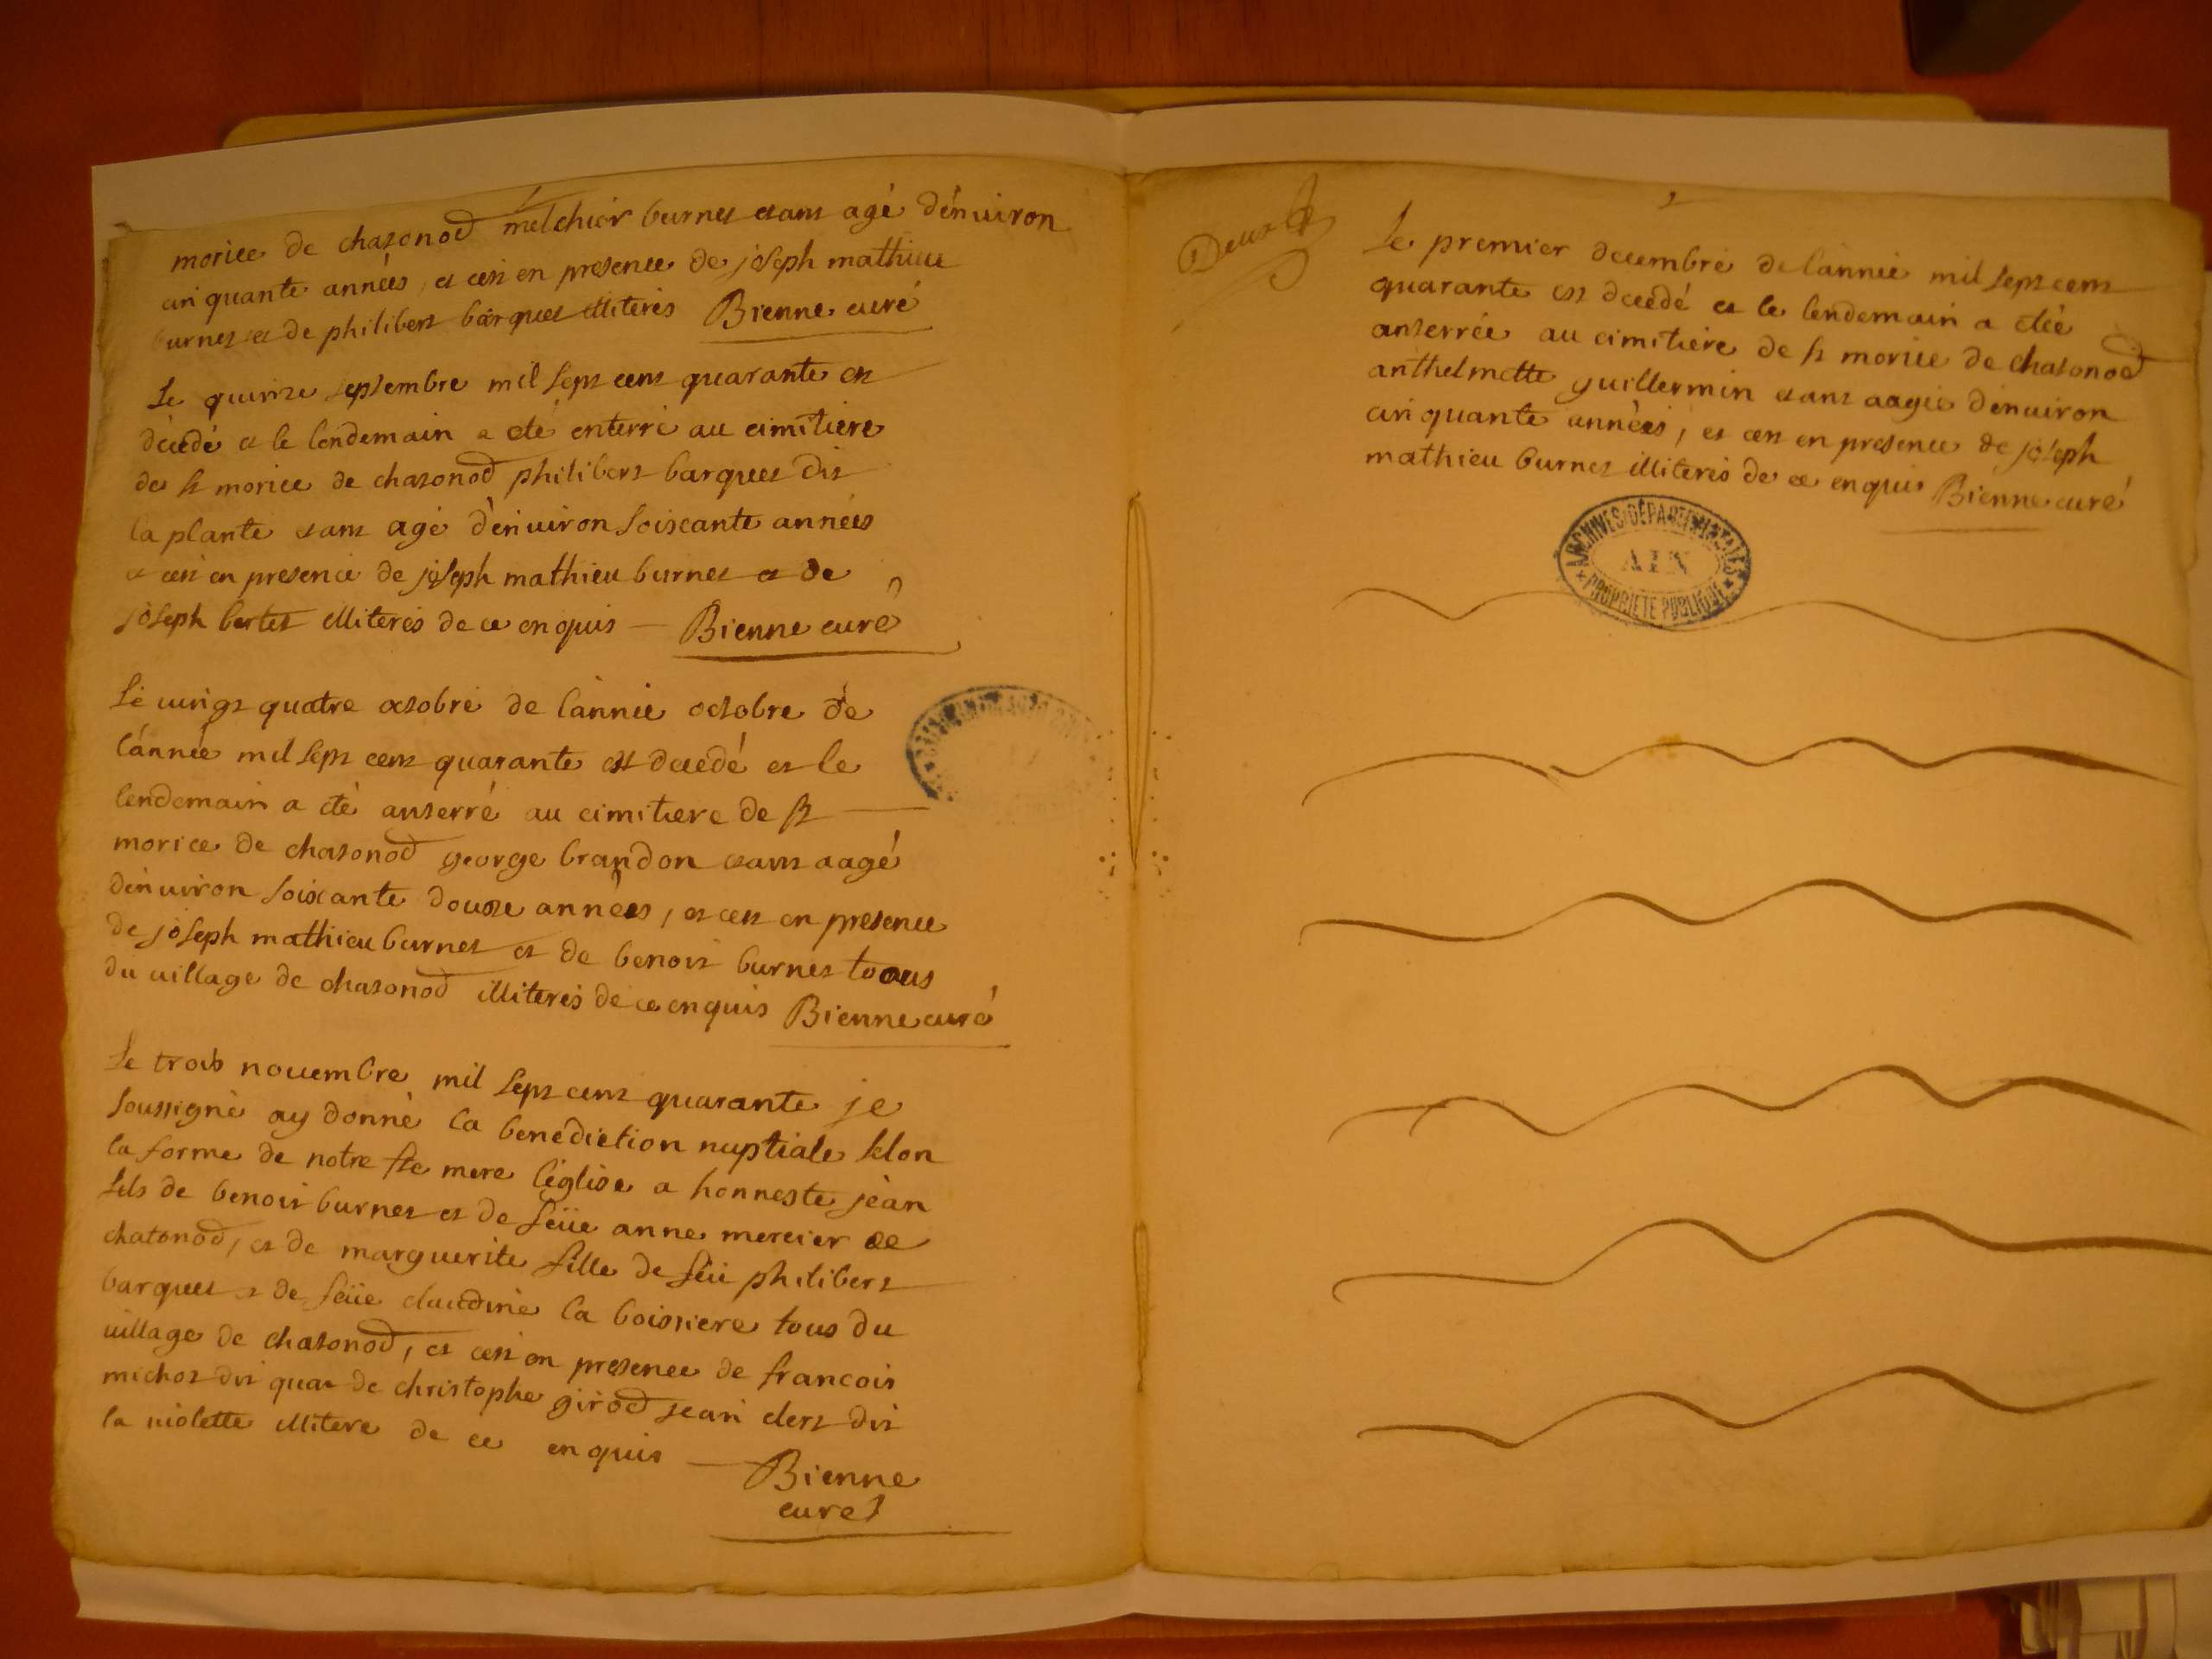 morice de chatonod melchior burnet etant agé dénuiron
cinquante années, et cest en presence de joseph mathieu
burnet et de philibert barquet illiterés Bienne curé
Le quinze septembre mil sept cent quarante est
décédé et le lendemain a été enterré au cimitiere
de st morice de chatonod philibert barquet dit
la plante etant agé dénuiron soiscante années
et cest en presence de joseph mathieu burnet et de
joseph bertet illiterés de ce enquis Bienne curé
Le uingt quatre octobre de lánnée octobre de
lánnée mil sept cent quarante est decedé et le
lendemain a eté anterré au cimitiere de st
morice de chatonod george brandon etant aagé
dénuiron soixante douze années, et cest en presence
de joseph mathieu burnet et de benoit burnet toous
du uillage de chatonod illiterés de ce enquis Bienne curé
Le trois nouembre mil sept cent quarante je
soussigné ay donné la benediction nuptiale selon
la forme de notre ste mere léglise a honneste jean
fils de benoit burnet et de feüe anne mercier de
chatonod, et de marguerite fille de feü philibert
barquet et de feüe claudine la boissiere tous du
uillage de chatonod, et cest en presence de francois
michot dit de christophe girod jean clert dit
la uiolette illitere de ce enquis
Bienne
curé
Deux
Le premier decembre de lánnée mil sept cent
quarante est decedé et le lendemain a etéé
anterrée au cimitiere de st morice de chatonod
anthelmette guillermin etant aagée dénuiron
cinquante années, et cest en presence de joseph
mathieu burnet illiterés de ce enquis Bienne curé
ARCHIVES DÉPARTEMENTALES
AIN
PROPRIÉTÉ PUBLIQUE